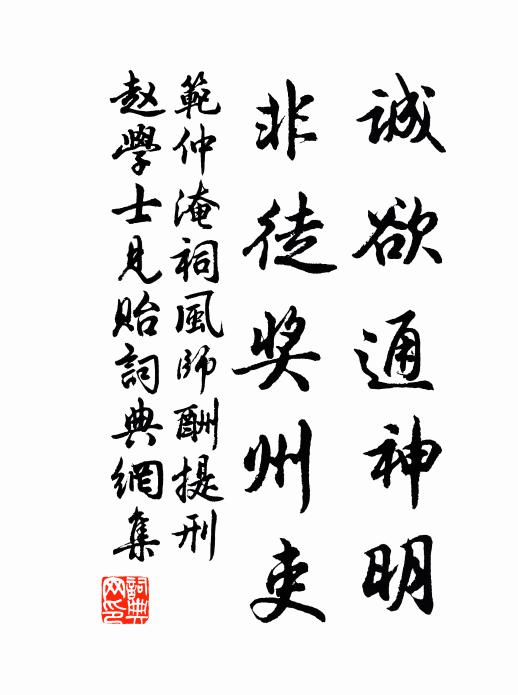 誠欲通神明
非徒奖州吏
範仲淹祠風師酬提刑
赵學士見貽詞典網集
詞典网印